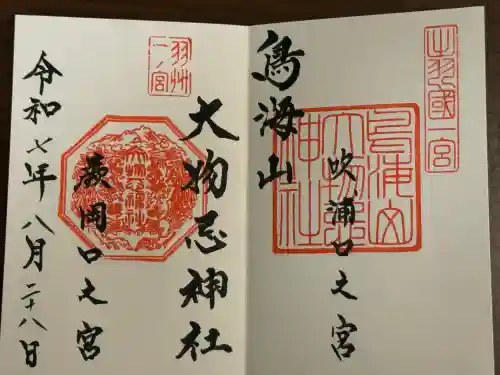 出羽國一宮
鳥海山
吹浦口之宮
鳥海山大物忌神社
羽州一ノ宮
大物忌神社
蕨岡口之宮
令和七年八月二十八日